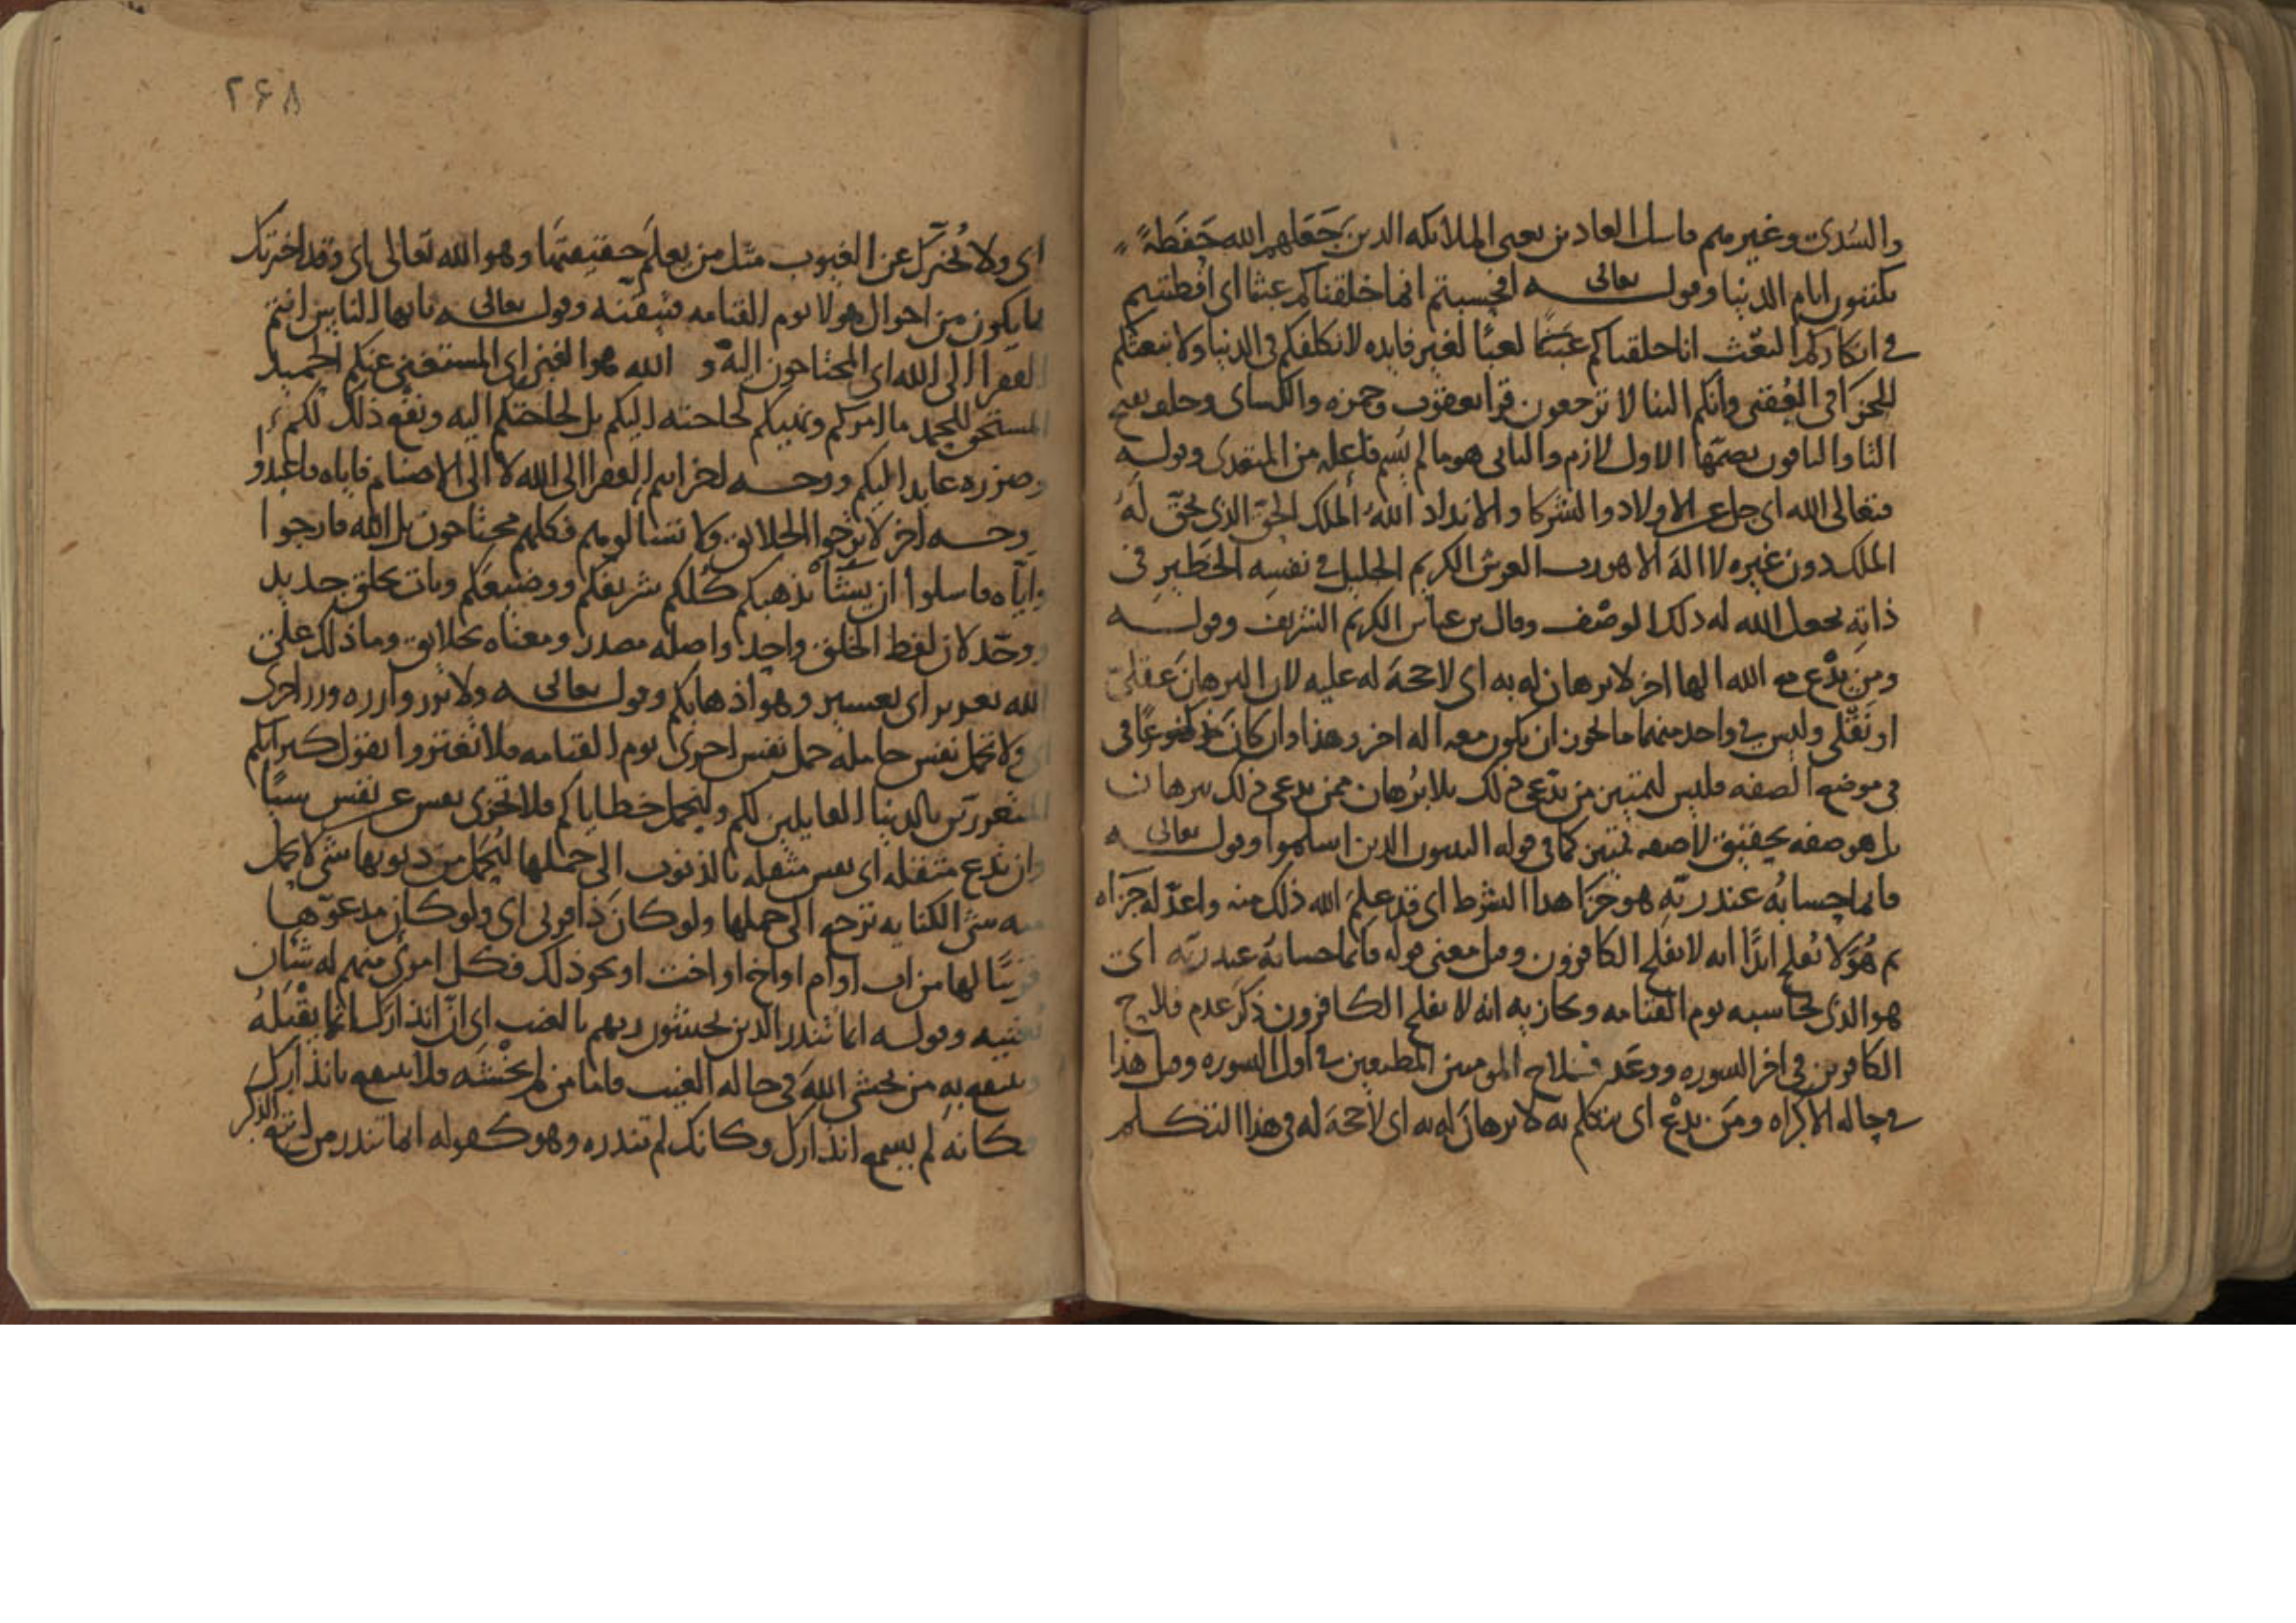 والسدى وغيرهم فاسل العادين يعنى الملائكه الذين جعلهم الله حفظة
يكتبون ايام الدنيا وقوله تعالى افحسبتم انما خلقناكم عبثا اى افظننتم
فى انكاركم البعث انا خلقناكم عبثا لعبا لغير فايده لا نكلفكم فى الدنيا ولا نبعثكم
للجزا فى العقبى وانكم الينا لا ترجعون قرا يعقوب وحمزه والكساى وخلف بفتح
التا والباقون بضمها الاول لازم والثانى هو ما لم يسم فاعله من المتعدى وقوله
فتعالى الله اى جل عن الاولاد والشركا والانداد الله الملك الحق الذى يحق له
الملك دون غيره لا اله الا هو رب العرش الكريم الجليل فى نفسه الخطير فى
ذاته بجعل الله له ذلك الوصف وقال بن عباس الكريم الشريف وقوله
ومن يدع مع الله الها اخر لا برهان له به اى لا حجة له عليه لان البرهان عقلى
او نقلى وليس فى واحد منهما ما يجوز ان يكون معه اله اخر وهذا وان كان فى
فى موضع الصفه فليس لتمييز من يدعى ذلك بلا برهان ممن يدعى ذلك ببرهان
بل هو صفه تحقيق لا صفه تمييز كما فى قوله النبيون الذين اسلموا وقوله تعالى
فانما حسابه عند ربه هو جزا هذا الشرط اى قد علم الله ذلك منه واعد له جزاه
ثم هؤلا تفلح ابدا انه لا يفلح الكافرون وقيل معنى قوله فانما حسابه عند ربه اى
هو الذى يحاسبه يوم القيامه ويجازيه انه لا يفلح الكافرون ذكر عدم فلاح
الكافرين فى اخر السوره ووعد فلاح المومنين المطيعين فى اول السوره وقيل هذا
فى حاله الاكراه ومن يدع اى يتكلم به لا برهان له به اى لا حجة له فى هذا التكلم
٢٦٨
اى ولا يخبرك عن الغيوب مثل من يعلم حقيقتها وهو الله تعالى اى وقد اخبرتك
بما يكون من احوال هولا يوم القيامه فتيقنه وقوله تعالى يايها الناس انتم
الفقرا الى الله اى المحتاجون اليه و الله هو الغنى اى المستغنى عنكم الحميد
المستحق للحمد ما امركم ونهيكم لحاجته اليكم بل لحاجتكم اليه ونفع ذلك لكم
وضرره عايد اليكم ووجه اخر انتم الفقرا الى الله لا الى الاصنام فاياه فاعبدوا
ووجه اخر لا ترجوا الخلايق ولا تسالوهم فكلهم محتاجون بل الله فارجوا
واياه فاسلوا ان يشأ يذهبكم كلكم شريفكم ووضيعكم ويات بخلق جديد
ووحد لان لفظ الخلق واحد واصله مصدر ومعناه بخلايق وما ذلك على
الله بعزيز اى بعسير وهو اذهابكم وقوله تعالى ولا تزر وازره وزر اخرى
اى ولا تحمل نفس حامله حمل نفس اخرى يوم القيامه فلا تغتروا بقول كبرائكم
المغورين بالدنيا القايلين لكم ولنحمل خطاياكم فلا تجزى نفس عن نفس شيا
وان تدع مثقله اى نفس مثقله بالذنوب الى حملها ليحمل من ذنوبها شى لا يحمل
منه شى الكنايه ترجع الى حملها ولو كان ذا قربى اى ولو كان مدعوها
قريبا لها من اب او ام او اخ او اخت او نحو ذلك فكل امرئ منهم له شان
يغنيه وقوله انما تنذر الذين يخشون ربهم بالغيب اى ان انذارك انما يقبله
وينتفع به من يخشى الله فى حاله الغيب فاما من لم يخشه فلا ينتفع بانذارك
فكانه لم يسمع انذارك وكانك لم تنذره وهو كقوله انما تنذر من اتبع الذكر